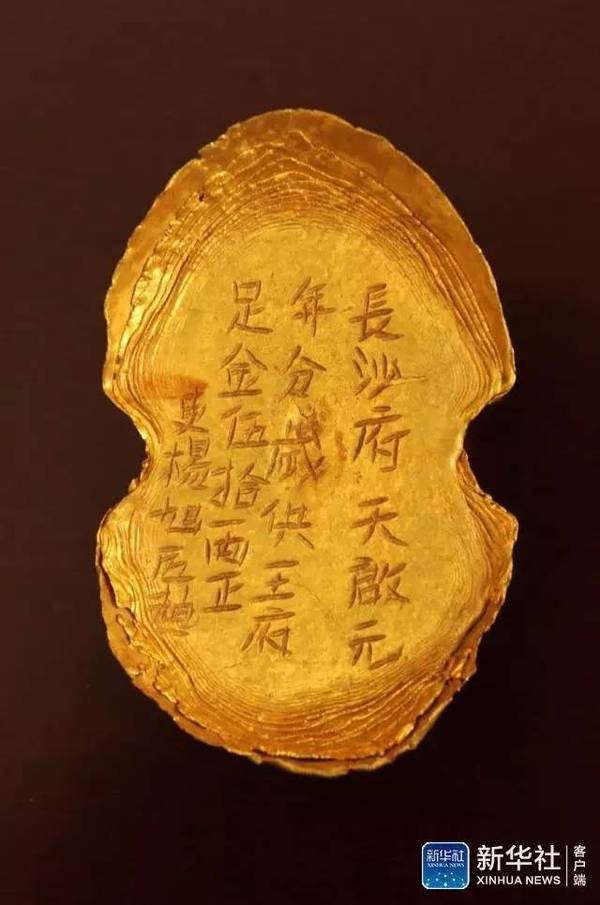 長沙府天啟元
年分歲供王府
足金伍拾両正
吏楊旭匠趙
新华社
新华社
XINHUA NEWS
客户端